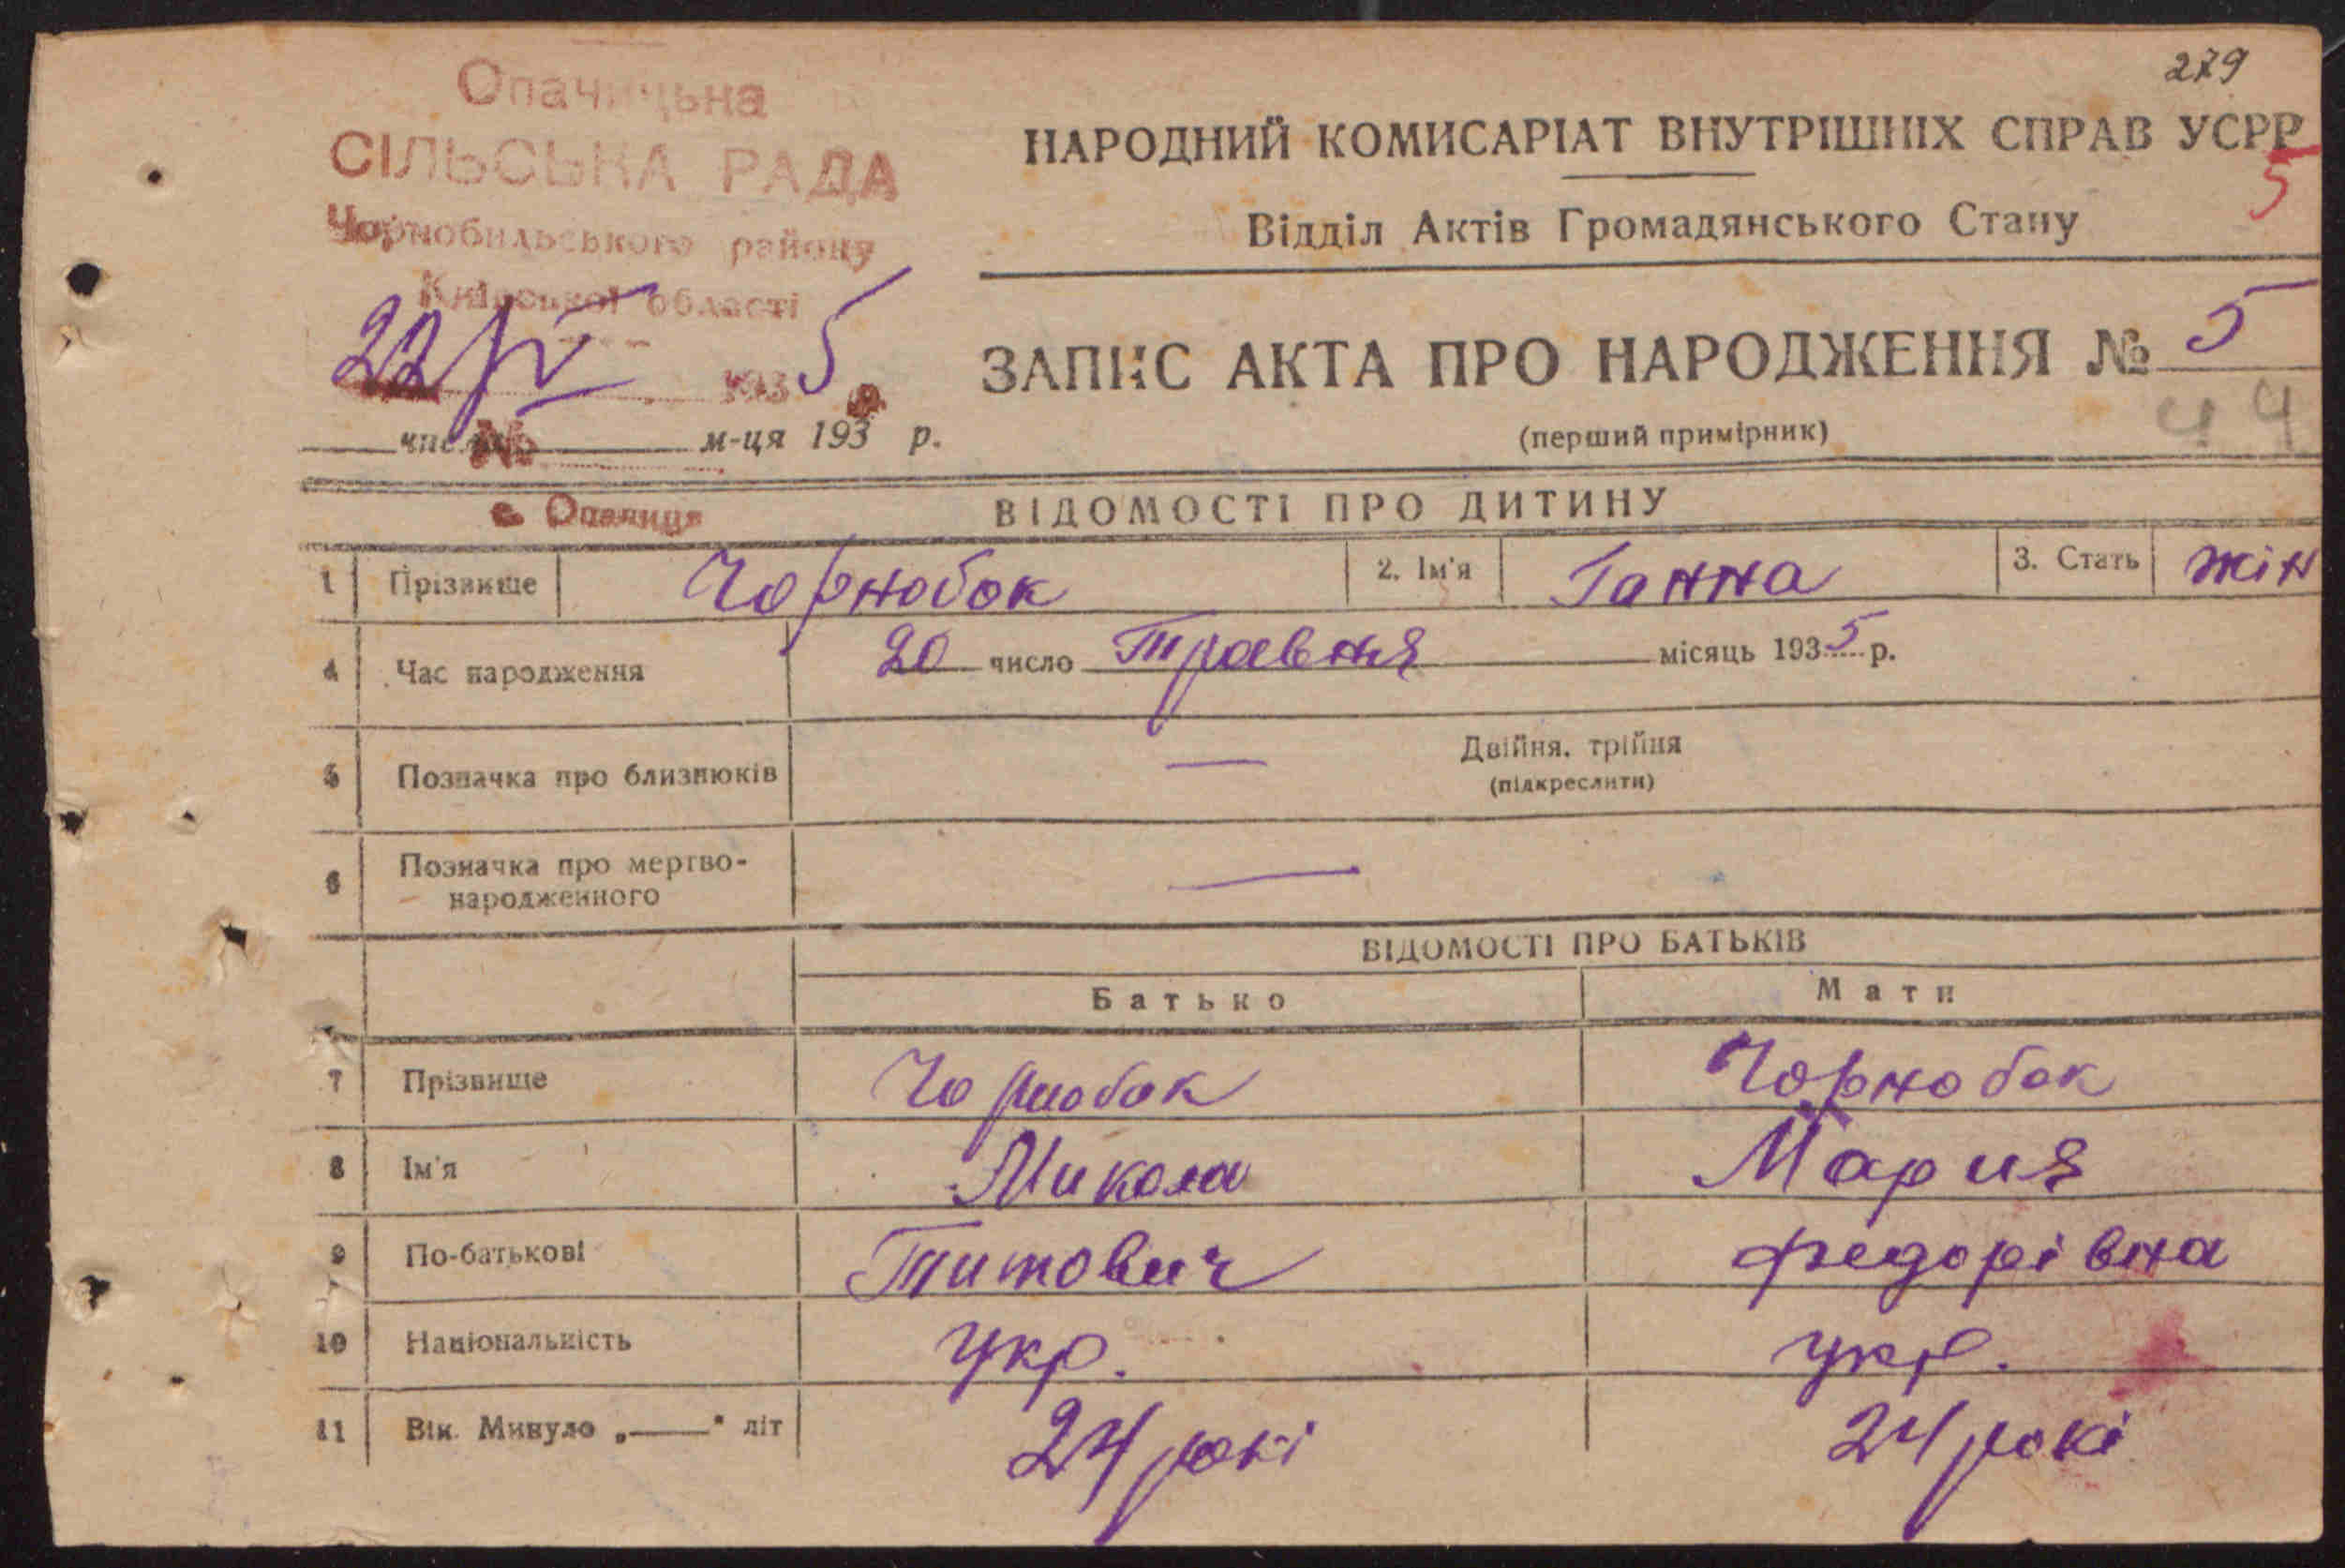 279
Опачицька
СІЛЬСЬКА РАДА
Чорнобильського району
Київської області
22/V 1935 р.
№
с. Опачиці
число м-ця 193 р.
НАРОДНИЙ КОМИСАРІАТ ВНУТРІШНІХ СПРАВ УСРР
5
Відділ Актів Громадянського Стану
ЗАПИС АКТА ПРО НАРОДЖЕННЯ № 5
(перший примірник)
44
ВІДОМОСТІ ПРО ДИТИНУ
1 Прізвище Чорнобок 2. Ім'я Ганна 3. Стать жін
4 Час народження 20 число Травня місяць 1935 р.
5 Позначка про близнюків — Двійня, трійня
(підкреслити)
6 Позначка про мертво-
народженного —
ВІДОМОСТІ ПРО БАТЬКІВ
Батько Мати
7 Прізвище Чорнобок Чорнобок
8 Ім'я Микола Мария
9 По-батькові Титович Федорівна
10 Національність Укр. укр.
11 Вік. Минуло „——" літ 24 рокі 24 рокі